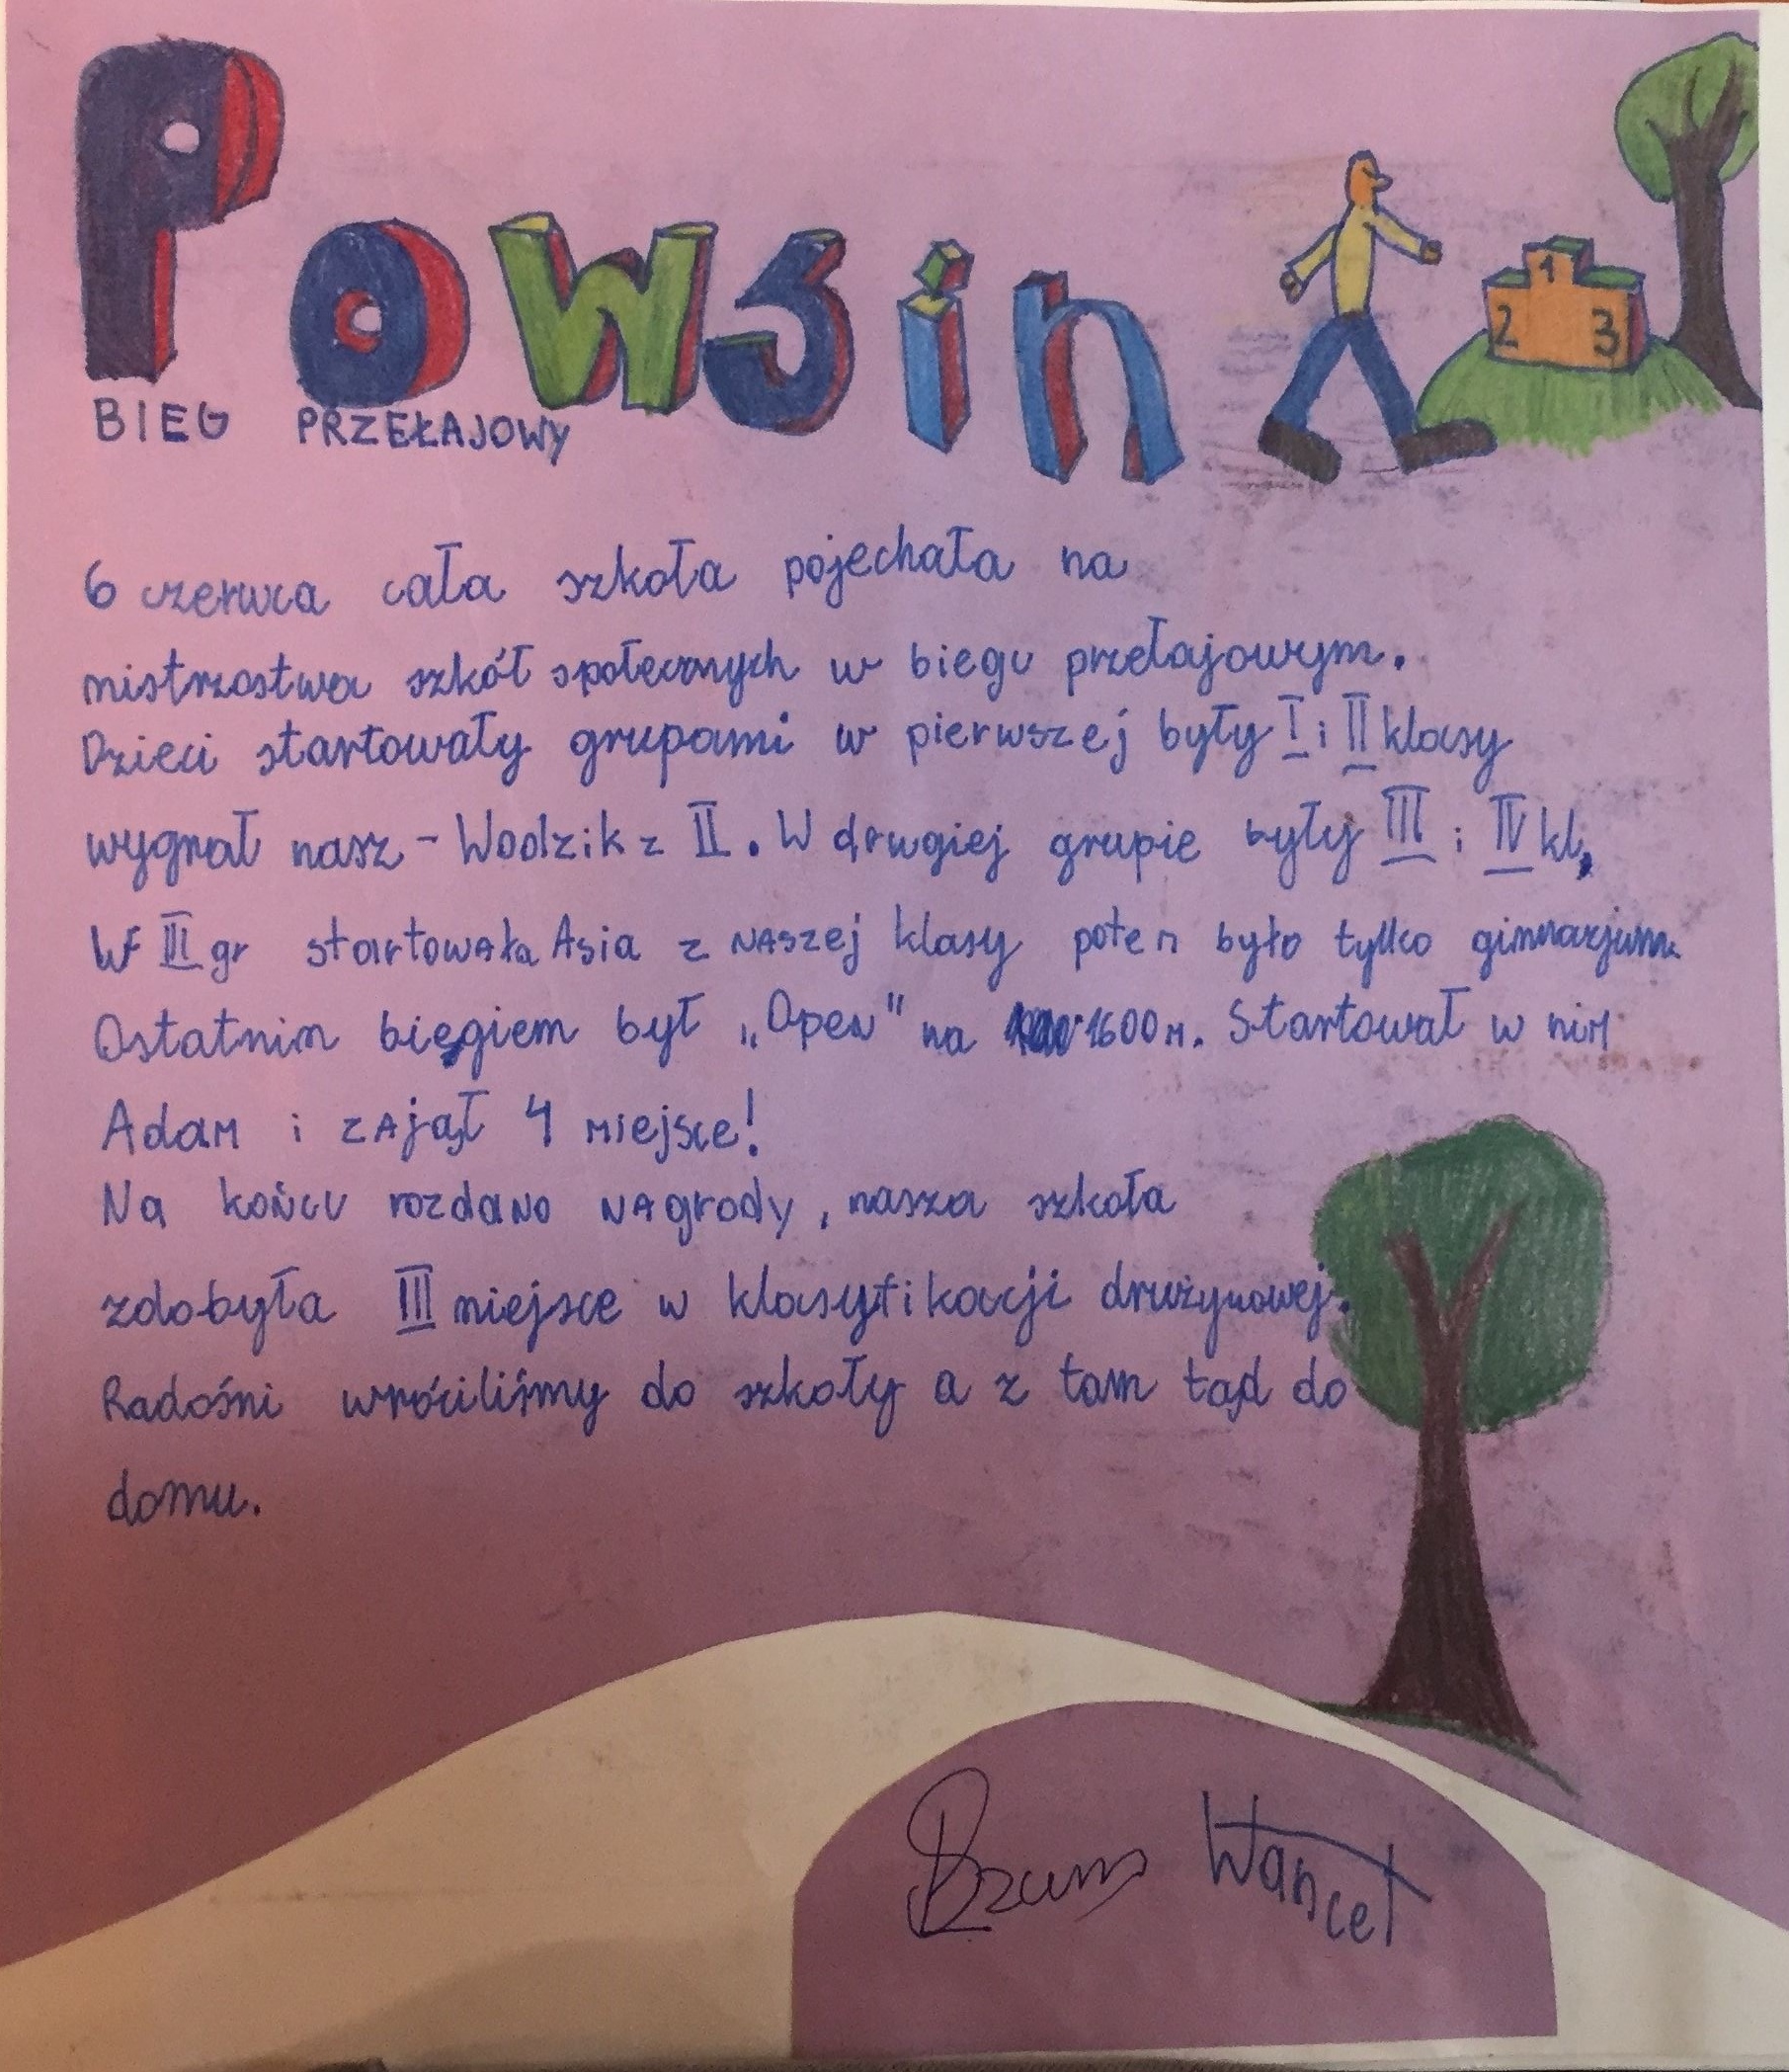 Powsin
1
2 3
BIEG PRZEŁAJOWY
6 czerwca cała szkoła pojechała na
mistrzostwa szkół społecznych w biegu przełajowym.
Dzieci startowały grupami w pierwszej były I i II klasy
wygrał nasz - Wodzik z II. W drugiej grupie były III i IV kl,
W III gr startowała Asia z naszej klasy potem było tylko gimnazjum.
Ostatnim biegiem był „Open" na 1600m. Startował w nim
Adam i zajął 4 miejsce!
Na końcu rozdano nagrody, nasza szkoła
zdobyła III miejsce w klasyfikacji drużynowej.
Radośni wróciliśmy do szkoły a z tam tąd do
domu.